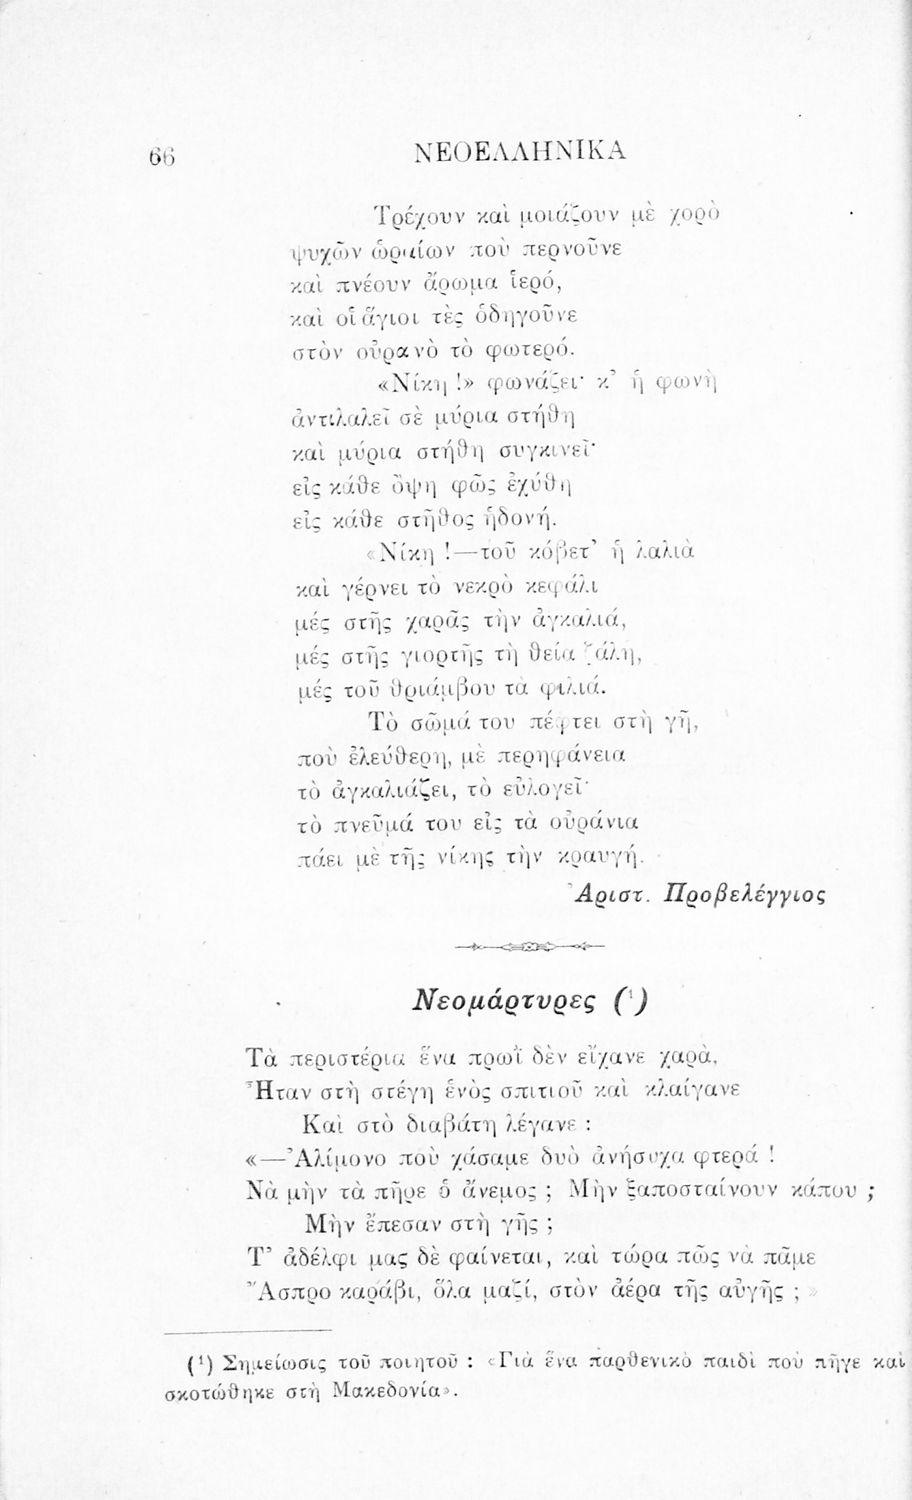 66 ΝΕΟΕΛΛΗΝΙΚΑ
Τρέχουν καὶ μοιάζουν μὲ χορὸ
ψυχῶν ὡραίων ποὺ περνοῦνε
καὶ πνέουν ἄρωμα ἱερό,
καὶ οἱ ἅγιοι τὲς ὁδηγοῦνε
στὸν οὐρανὸ τὸ φωτερό.
«Νίκη !» φωνάζει· κ' ἡ φωνὴ
ἀντιλαλεῖ σὲ μύρια στήθη
καὶ μύρια στήθη συγκινεῖ·
εἰς κάθε ὄψη φῶς ἐχύθη
εἰς κάθε στῆθος ἡδονή.
«Νίκη !—τοῦ κόβετ' ἡ λαλιὰ
καὶ γέρνει τὸ νεκρὸ κεφάλι
μές στῆς χαρᾶς τὴν ἀγκαλιά,
μές στῆς γιορτῆς τὴ θεία ζάλη,
μές τοῦ θριάμβου τὰ φιλιά.
Τὸ σῶμά του πέφτει στὴ γῆ,
ποὺ ἐλεύθερη, μὲ περηφάνεια
τὸ ἀγκαλιάζει, τὸ εὐλογεῖ·
τὸ πνεῦμά του εἰς τὰ οὐράνια
πάει μὲ τῆς νίκης τὴν κραυγή.
Ἀριστ. Προβελέγγιος
Νεομάρτυρες (¹)
Τὰ περιστέρια ἕνα πρωῒ δὲν εἴχανε χαρὰ,
Ἦταν στὴ στέγη ἑνὸς σπιτιοῦ καὶ κλαίγανε
Καὶ στὸ διαβάτη λέγανε :
«—Ἀλίμονο ποὺ χάσαμε δυὸ ἀνήσυχα φτερά !
Νὰ μὴν τὰ πῆρε ὁ ἄνεμος ; Μὴν ξαποσταίνουν κάπου ;
Μὴν ἔπεσαν στὴ γῆς ;
Τ' ἀδέλφι μας δὲ φαίνεται, καὶ τώρα πῶς νὰ πᾶμε
Ἄσπρο καράβι, ὅλα μαζί, στὸν ἀέρα τῆς αὐγῆς ; »
(¹) Σημείωσις τοῦ ποιητοῦ : «Γιὰ ἕνα παρθενικὸ παιδὶ ποὺ πῆγε καὶ
σκοτώθηκε στὴ Μακεδονία».